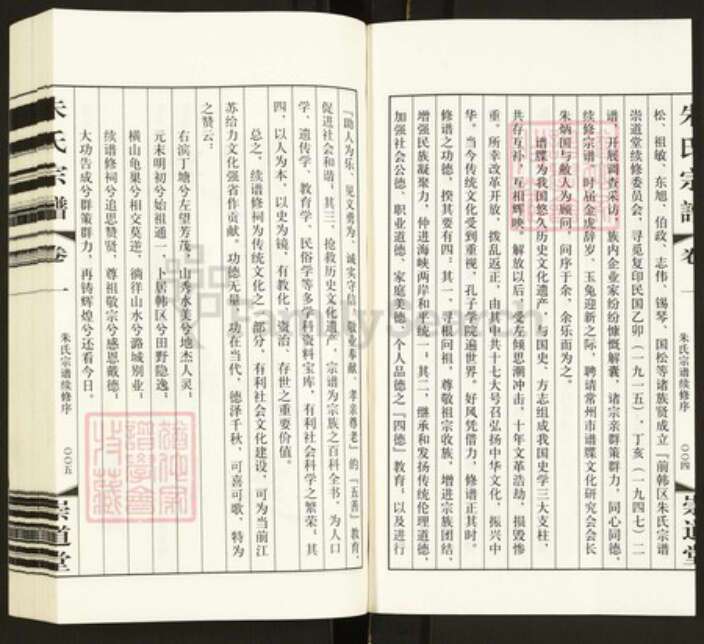 朱氏宗谱
卷一
朱氏宗谱续修序
〇〇四
崇道堂
松、祖敏、东旭、伯政、志伟、锡琴、国松等诸族贤成立『前韩区朱氏宗谱
崇道堂续修委员会』，寻觅复印民国乙卯（一九一五）、丁亥（一九四七）二
谱，开展调查采访，族内企业家纷纷慷慨解囊，诸宗亲群策群力，同心同德，
续修宗谱。时届金虎辞岁、玉兔迎新之际，聘请常州市谱牒文化研究会会长
朱炳国与敝人为顾问，问序于余，余乐而为之。
谱牒为我国悠久历史文化遗产，与国史、方志组成我国史学三大支柱，
共存互补，互相辉映。解放以后，受左倾思潮冲击，十年文革浩劫，损毁惨
重。所幸改革开放，拨乱返正，由其中共十七大号召弘扬中华文化，振兴中
华。当今传统文化受到重视，孔子学院遍世界。好风凭借力，修谱正其时。
修谱之功德，揆其要有四：其一、寻根问祖，尊敬祖宗收族，增进宗族团结，
增强民族凝聚力，伸进海峡两岸和平统一；其二、继承和发扬传统伦理道德，
加强社会公德、职业道德、家庭美德、个人品德之『四德』教育，以及进行
『助人为乐、见义勇为、诚实守信、敬业奉献、孝亲尊老』的『五善』教育，
促进社会和谐；其三、抢救历史文化遗产，宗谱为宗族之百科全书，为人口
学、遗传学、教育学、民俗学等多学科资料宝库，有利社会科学之繁荣；其
四、以人为本，以史为镜，有教化、资治、存世之重要价值。
总之，续谱修祠为传统文化之一部分，有利社会文化建设，可为当前江
苏给力文化强省作贡献。功德无量，功在当代，德泽千秋，可喜可歌，特为
之赞云：
右滨丁塘兮左望芳茂，山秀水美兮地杰人灵；
元末明初兮始祖通一，卜居韩区兮田野隐逸；
横山龟巢兮相交莫逆，徜徉山水兮潞城别业；
续谱修祠兮追思赞贤，尊祖敬宗兮感恩戴德；
大功告成兮群策群力，再铸辉煌兮还看今日。
朱氏宗谱
卷一
朱氏宗谱续修序
〇〇五
崇道堂
FamilySearch